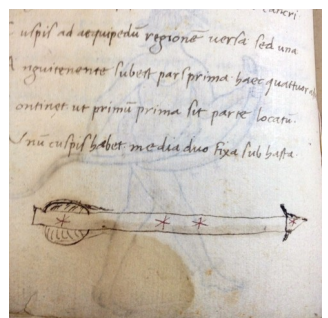 cancri
uspis ad aequipedũ regionẽ versa sed una
nguitenente subest pars prima. haec quattuor
ontinet ut primũ prima sit parte locatũ.
Vnũ cuspis habet media duo fixa sub hasta.